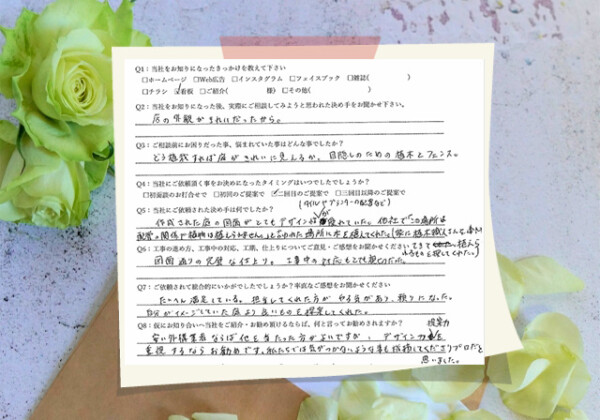 Q1：当社をお知りになったきっかけを教えて下さい
□ホームページ □Web広告 □インスタグラム □フェイスブック □雑誌( )
□チラシ ☑看板 □ご紹介( 様) □その他( )
Q2：当社をお知りになった後、実際にご相談してみようと思われた決め手をお聞かせ下さい。
店の外観がきれいだったから。
Q3：ご相談前にお困りだった事、悩まれていた事はどんな事でしたか？
どう植栽すれば庭がきれいに見えるか、目隠しのための植木とフェンス。
Q4：当社にご依頼頂く事をお決めになったタイミングはいつでしたでしょうか？
□初面談のお打合せで □初回のご提案で ☑二回目のご提案で □三回目以降のご提案で
Q5：当社にご依頼された決め手は何でしたか？
(タイルやプランターの配置など)
作成された庭の図面がとてもデザインが優れていた。他社で「この場所は
配管の関係で植物は植えられません」と言われた場所に木を植えてくれた。
Q6：工事の進め方、工事中の対応、工期、仕上りについてご意見・ご感想をお聞かせください
図面通りの完璧な仕上り。工事中の対応もとても親切だった。
Q7：ご依頼されて総合的にいかがでしたでしょうか？率直なご感想をお聞かせください
たいへん満足している。担当してくれた方がやる気があり、頼りになった。
自分がイメージしていた庭より良いものを提案してくれた。
Q8：仮にお知り合いへ当社をご紹介・お勧め頂けるならば、何と言ってお勧めされますか？
安い外構業者ならば他を当たった方がよいですが、デザイン力 提案力を
重視するならお勧めです。私たちでは気がつかないような事も指摘してくださりプロだと
思いました。